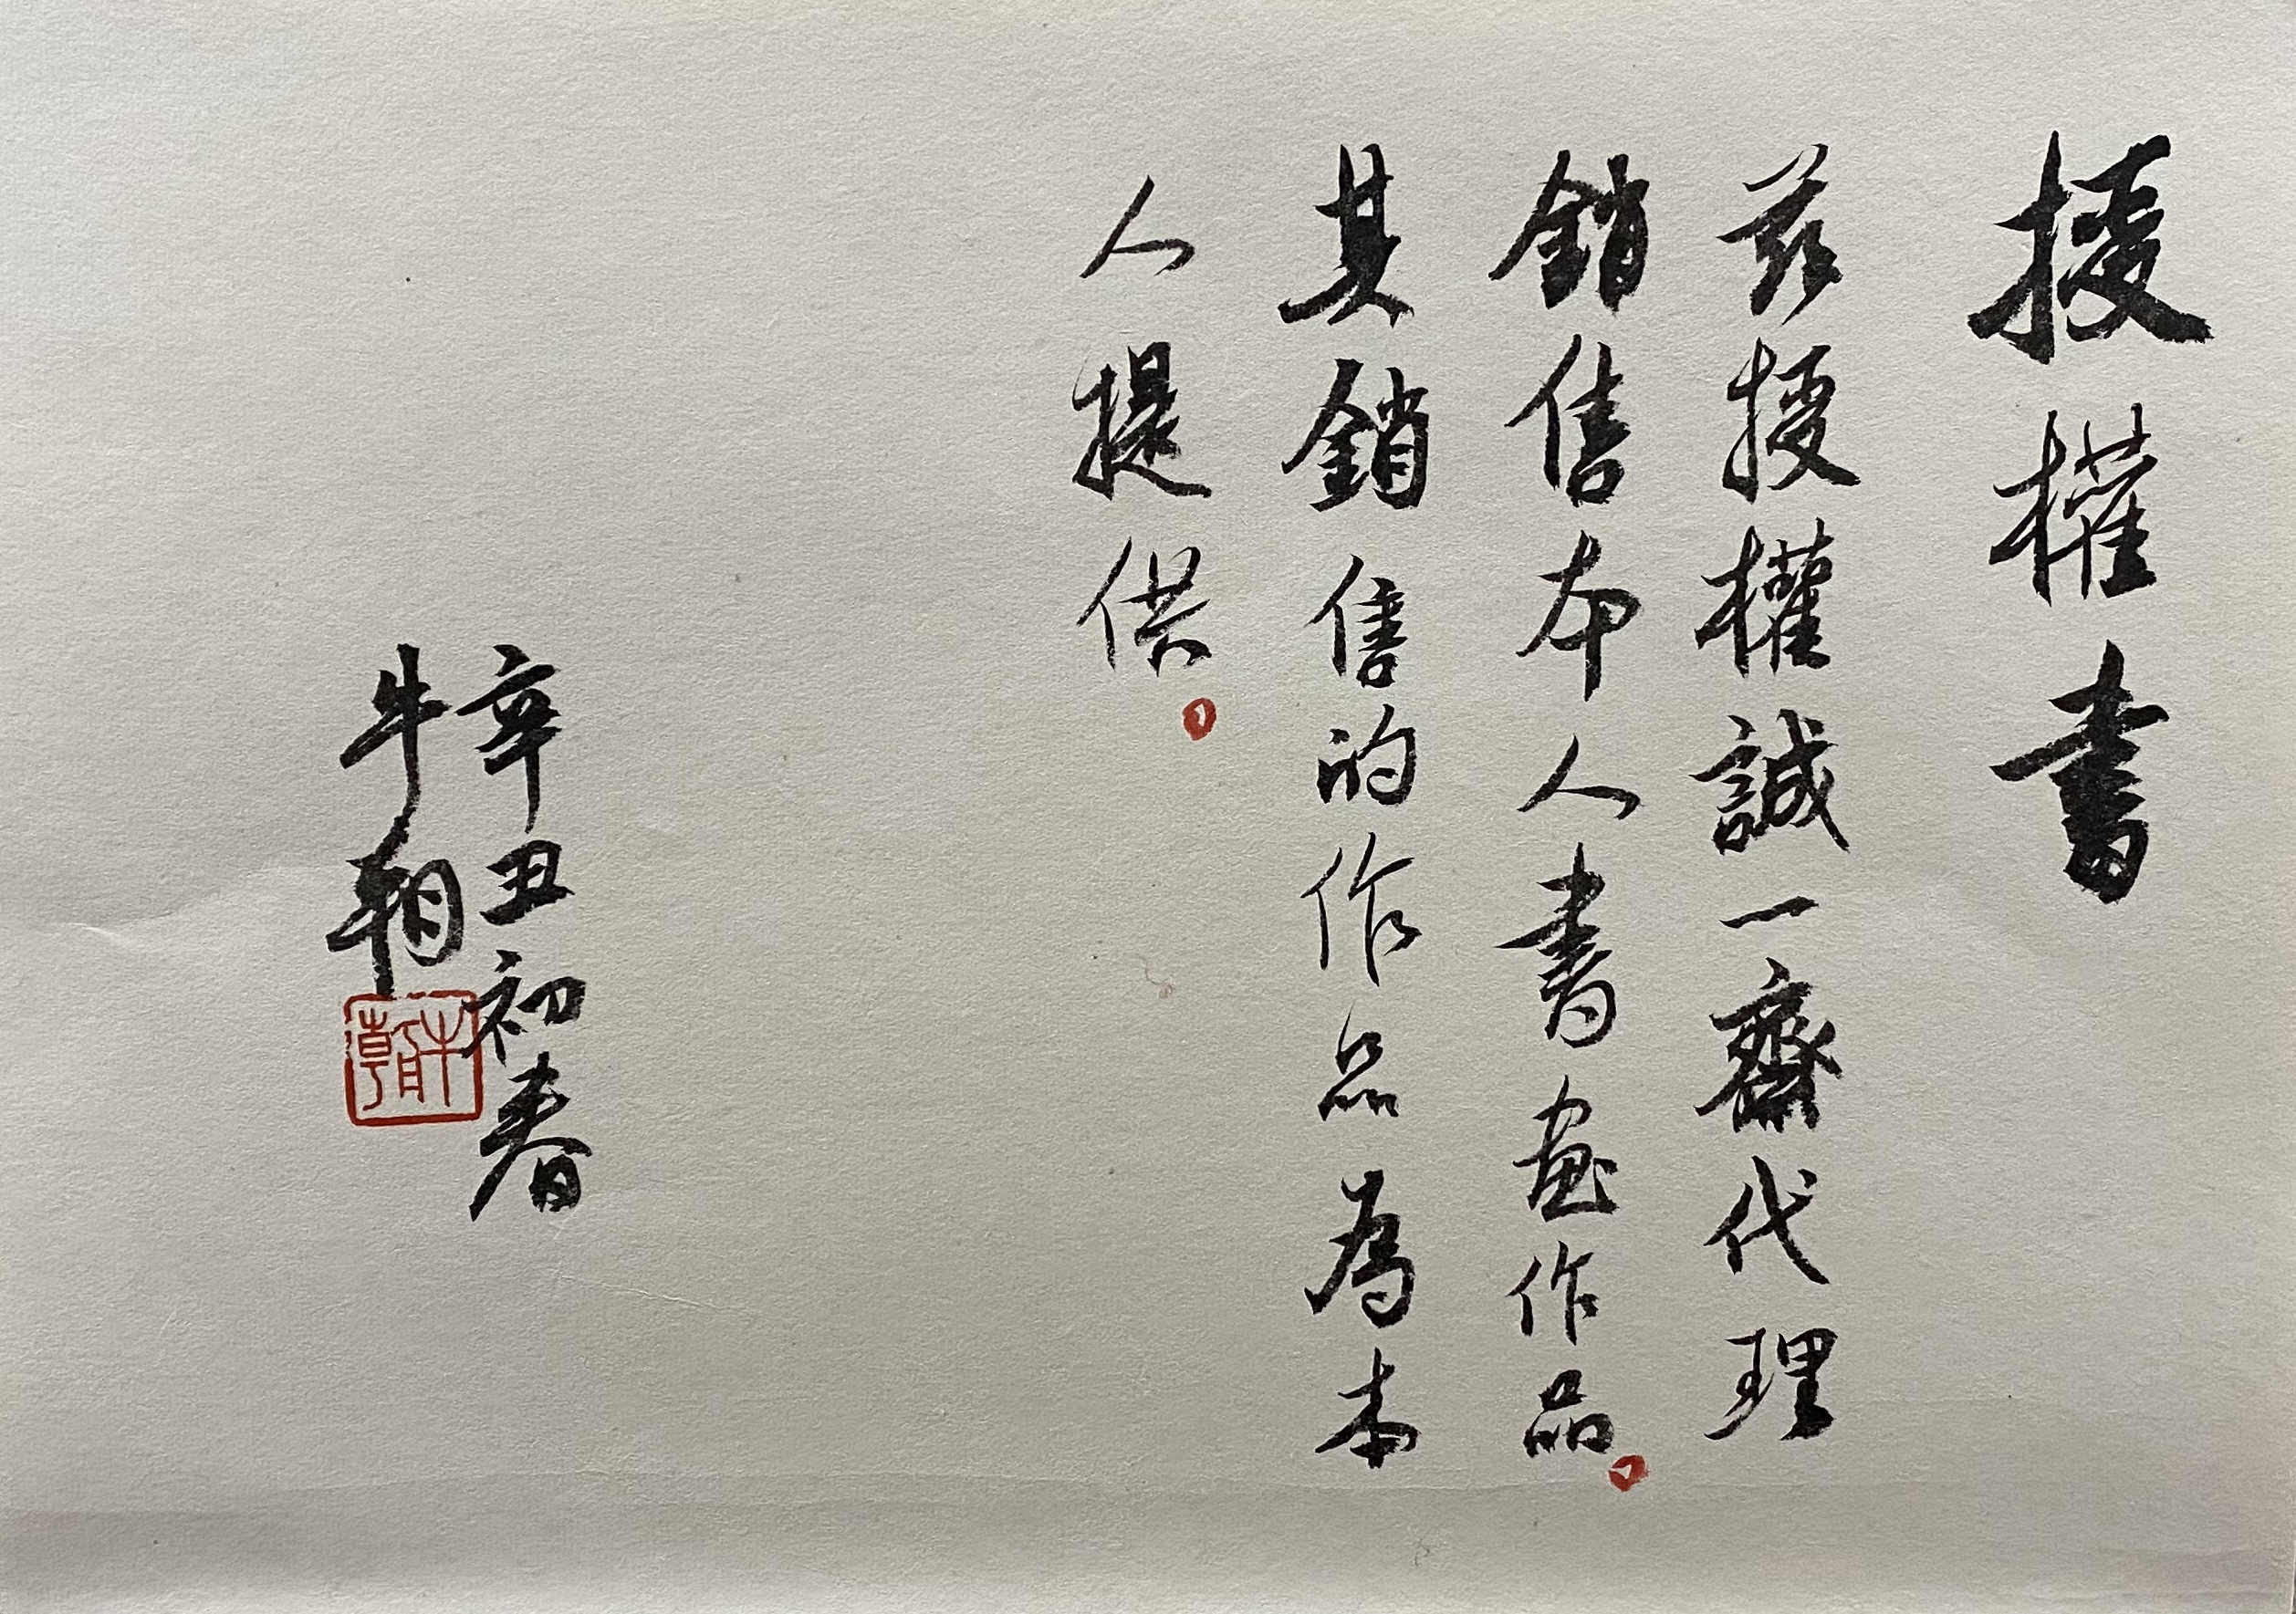 授權書
茲授權誠一齋代理
銷售本人書畫作品。
其銷售的作品為本
人提供。
辛丑初春
牛朝